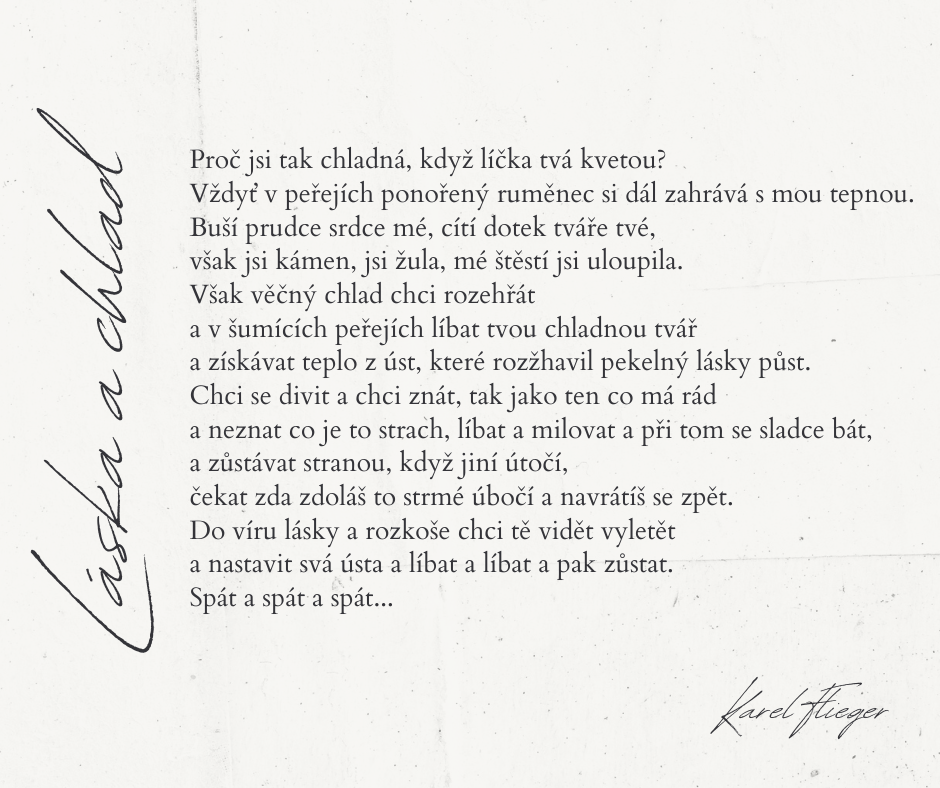 Láska a chlad
Proč jsi tak chladná, když líčka tvá kvetou?
Vždyť v peřejích ponořený ruměnec si dál zahrává s mou tepnou.
Buší prudce srdce mé, cítí dotek tváře tvé,
však jsi kámen, jsi žula, mé štěstí jsi uloupila.
Však věčný chlad chci rozehřát
a v šumících peřejích líbat tvou chladnou tvář
a získávat teplo z úst, které rozžhavil pekelný lásky půst.
Chci se divit a chci znát, tak jako ten co má rád
a neznat co je to strach, líbat a milovat a při tom se sladce bát,
a zůstávat stranou, když jiní útočí,
čekat zda zdoláš to strmé úbočí a navrátíš se zpět.
Do víru lásky a rozkoše chci tě vidět vyletět
a nastavit svá ústa a líbat a líbat a pak zůstat.
Spát a spát a spát...
Karel Flieger